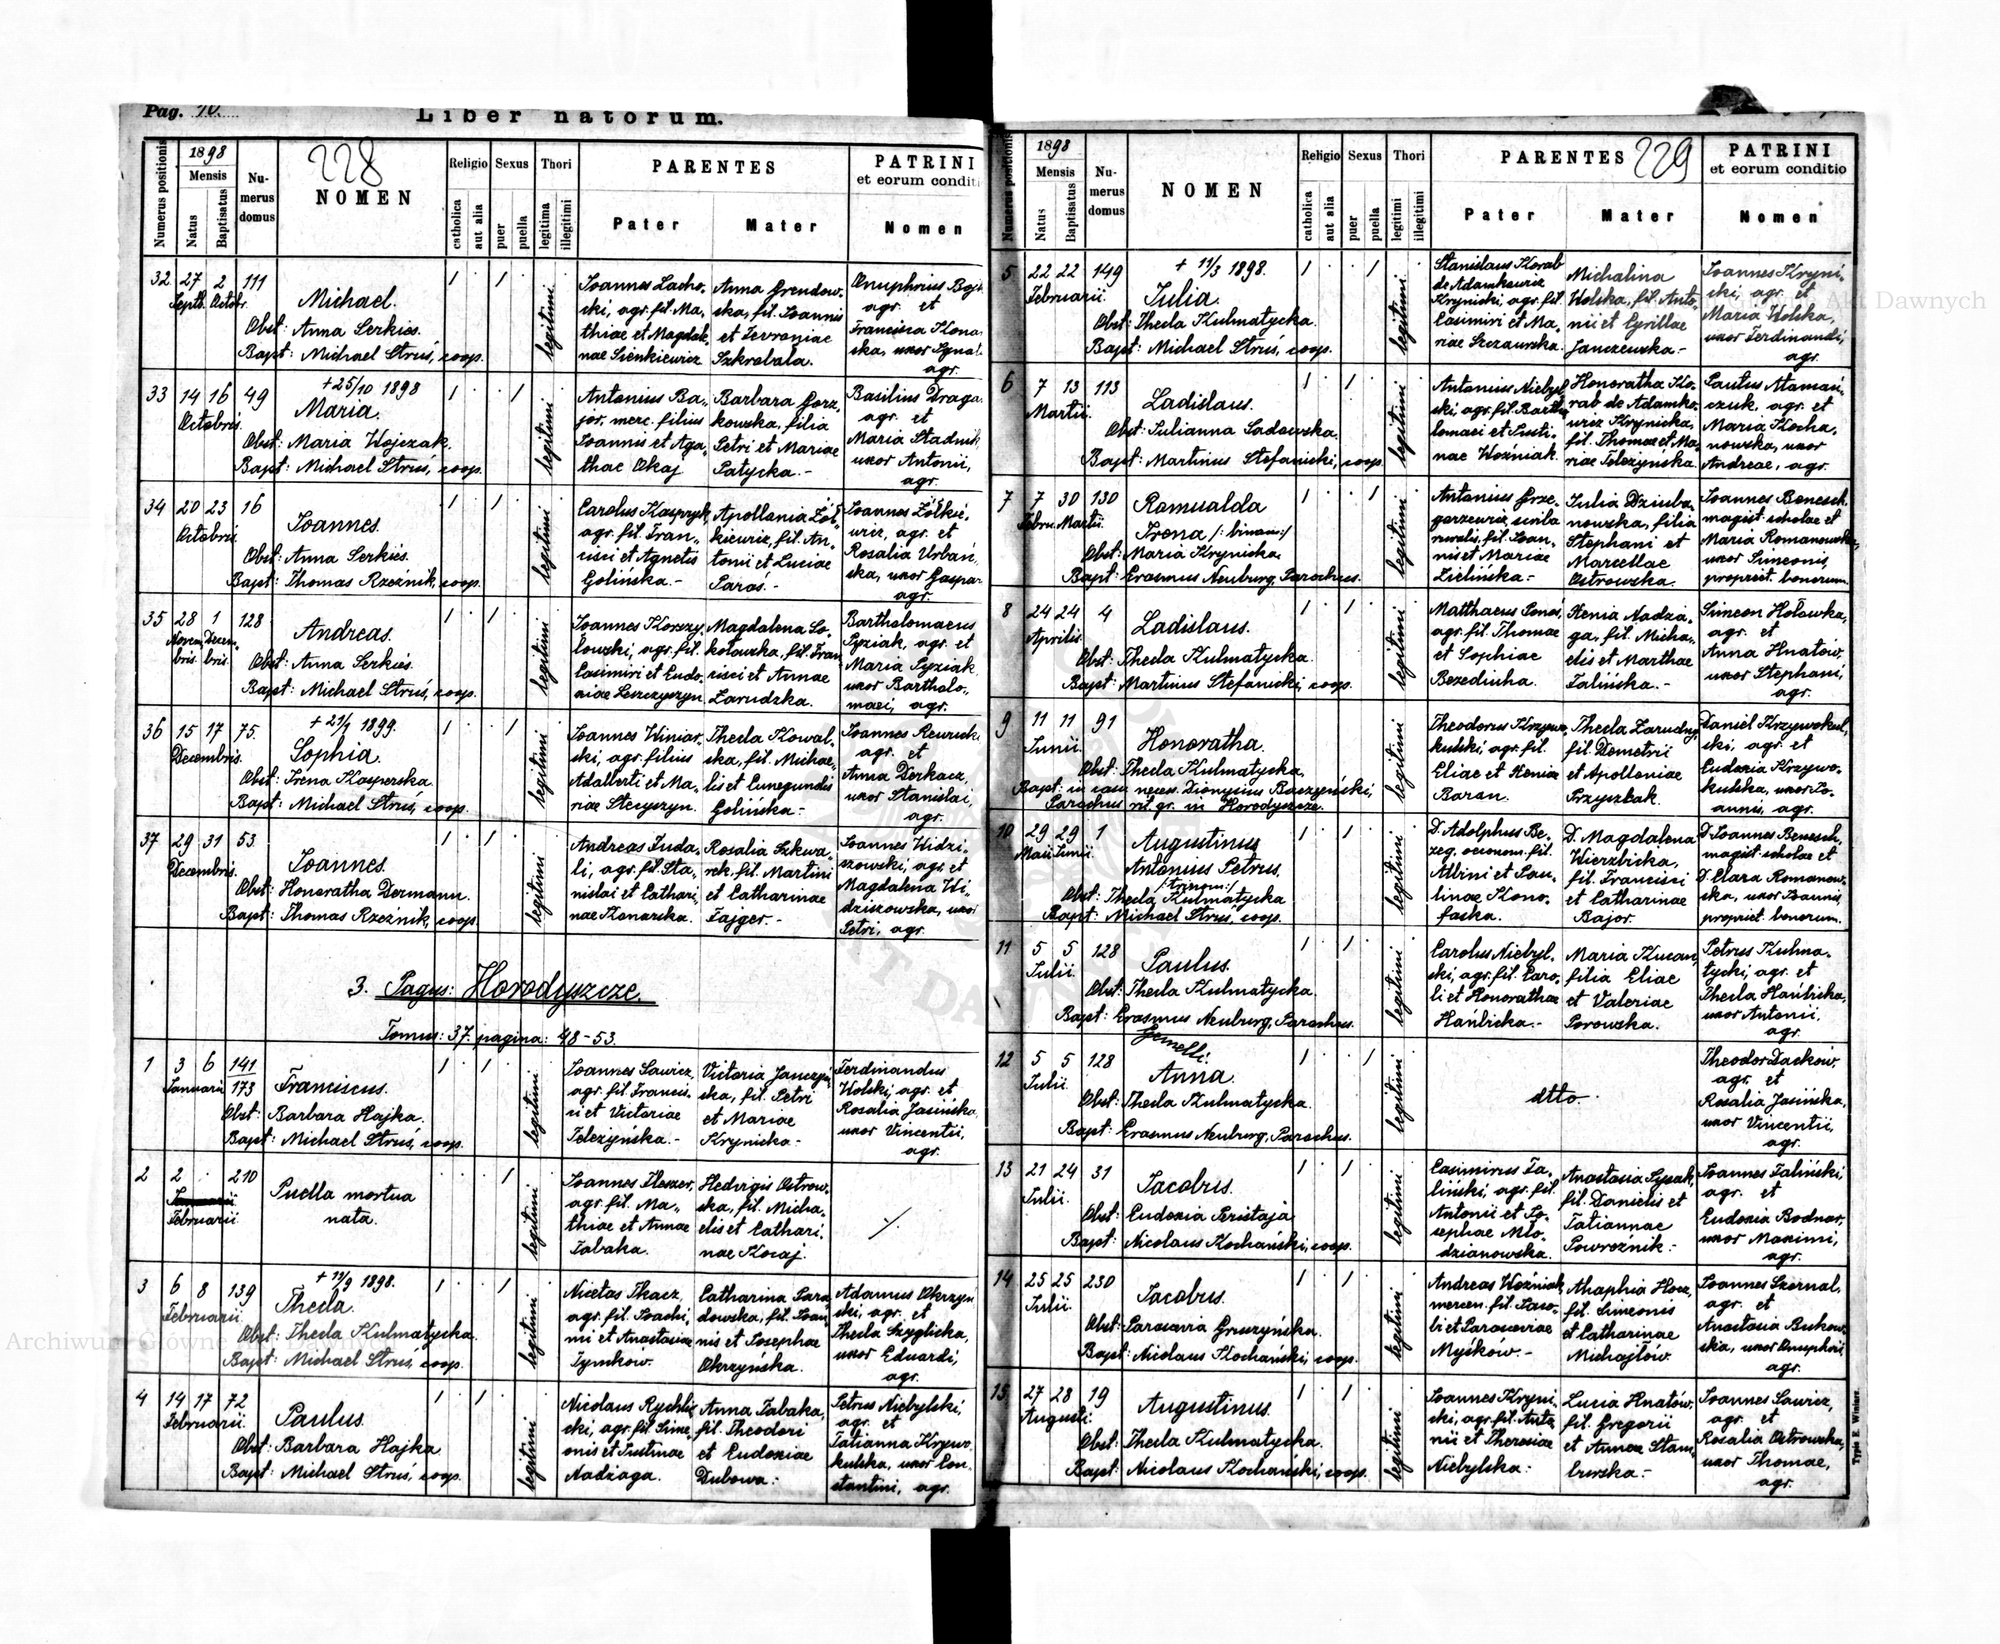 Pag. 70.
Liber natorum.
228
Numerus positionis
1898
Mensis
Natus
Baptisatus
Numerus domus
NOMEN
Religio
catholica
aut alia
Sexus
puer
puella
Thori
legitima
illegitimi
PARENTES
Pater
Mater
PATRINI
et eorum conditi
Nomen
32 27 2 111
Septb. Octobr.
Michael.
Obst: Anna Serkies.
Bapt: Michael Struś, coop.
legitimi
Ioannes Lacho-
ski, agr. fil. Ma-
thiae et Magdale
nae Sienkiewicz
Anna Grendow-
ska, fil. Ioannis
et Fevroniae
Szkrabala.
Onuphrius Baj
agr. et
Francisca Kona
ska, uxor Ignat
agr.
33 14 16 49
Octobris.
+ 25/10 1898
Maria.
Obst: Maria Wojczak.
Bapt: Michael Struś, coop.
legitimi
Antonius Ba-
jor, merc. filius
Ioannis et Aga-
thae Okaj
Barbara Gorz-
kowska, filia
Petri et Mariae
Patycka.-
Basilius Draga
agr. et
Maria Stadnik
uxor Antonii,
agr.
34 20 23 16
Octobris
Ioannes.
Obst: Anna Serkies.
Bapt: Thomas Rzeźnik, coop.
legitimi
Carolus Kasprzyk,
agr. fil. Fran-
cisci et Agnetis
Golińska.-
Apollonia Żół-
kiewicz, fil. An-
tonii et Luciae
Paraś.-
Ioannes Żółkie-
wicz, agr. et
Rosalia Urbań-
ska, uxor Gaspar
agr.
35 28 1 128
Novem Decem-
bris. bris.
Andreas.
Obst: Anna Serkies.
Bapt: Michael Struś, coop.
legitimi
Ioannes Korczy-
łowski, agr. fil.
Casimiri et Eudo-
xiae Leszczyszyn.
Magdalena So-
kołowska, fil. Fran
cisci et Annae
Zarudzka.
Bartholomaeus
Pyziak, agr. et
Maria Pyziak
uxor Bartholo-
maei, agr.
36 15 17 75.
Decembris.
+ 21/1 1899.
Sophia.
Obst: Irena Kasperska.
Bapt: Michael Struś, coop.
legitimi
Ioannes Winiar-
ski, agr. filius
Adalberti et Ma-
riae Stecyszyn.
Thecla Kowal-
ska, fil. Michae-
lis et Cunegundis
Golińska.-
Ioannes Rewucki
agr. et
Anna Derkacz,
uxor Stanislai,
agr.
37 29 31 53.
Decembris.
Ioannes.
Obst: Honoratha Dermann.
Bapt: Thomas Rzeźnik, coop.
legitimi
Andreas Juda-
li, agr. fil. Sta-
nislai et Cathari-
nae Konarska.
Rosalia Szkwa-
rek fil. Martini
et Catharinae
Fajger.-
Ioannes Widzi-
szowski, agr. et
Magdalena Wi-
dziszowska, uxor
Petri, agr.
3. Pagus: Horodyszcze.
Tomus: 37. pagina: 48-53.
1 3 6 141
Januarii 173
Franciscus.
Obst: Barbara Hajka.
Bapt: Michael Struś, coop.
legitimi
Ioannes Sawicz,
agr. fil. Francis-
ci et Victoriae
Teleżyńska.-
Victoria Janczyń-
ska, fil. Petri
et Mariae
Krynicka-
Ferdinandus
Wolski, agr. et
Rosalia Jasińska
uxor Vincentii,
agr.
2 2 210
Februarii
Puella mortua
nata.
legitimi
Ioannes Fleszer,
agr. fil. Ma-
thiae et Annae
Tabaka.
Hedvigis Ostrow-
ska, fil. Micha-
elis et Cathari-
nae Kocaj.
3 6 8 139
Februarii.
+ 19/9 1898.
Thecla.
Obst: Thecla Kulmatycka.
Bapt: Michael Struś, coop.
legitimi
Nicetas Tkacz,
agr. fil. Ioachi-
mi et Anastasiae
Tymków.
Catharina Para
dowska, fil. Ioan
nis et Josephae
Okrzyńska.
Adamus Okrzyn
ski, agr. et
Thecla Szyglicka,
uxor Eduardi,
agr.
4 14 17 72
Februarii.
Paulus.
Obst: Barbara Hajka
Bapt: Michael Struś, coop.
legitimi
Nicolaus Rychlic
ski, agr. fil. Sime
onis et Justinae
Nadziaga.
Anna Tabaka,
fil. Theodori
et Eudoxiae
Dubowa:
Petrus Niebylski,
agr. et
Tatianna Krywo
kulska, uxor Con
stantini, agr.
229
Numerus positionis
1898
Mensis
Natus
Baptisatus
Numerus domus
NOMEN
Religio
catholica
aut alia
Sexus
puer
puella
Thori
legitimi
illegitimi
PARENTES
Pater
Mater
PATRINI
et eorum conditio
Nomen
5 22 22 149
Februarii.
+ 11/3 1898.
Iulia.
Obst: Thecla Kulmatycka.
Bapt: Michael Struś, coop.
legitimi
Stanislaus Korab
de Adamkowicz
Krynicki, agr. fil.
Casimiri et Ma-
riae Szczawska.
Michalina
Wolska, fil. Anto-
nii et Cyrillae
Janczewska.-
Ioannes Kryni-
cki, agr. et
Maria Wolska,
uxor Ferdinandi,
agr.
6 7 13 113
Martii.
Ladislaus.
Obst: Iulianna Sadowska.
Bapt: Martinus Stefanicki, coop.
legitimi
Antonius Niebyl
ski, agr. fil. Bartho
lomaei et Justi-
nae Woźniak.
Honoratha Ko-
rab de Adamko-
wicz Krynicka,
fil. Thomae et Ma-
riae Teleżyńska.
Paulus Atamań-
czuk, agr. et
Maria Kocha-
nowska, uxor
Andreae, agr.
7 7 30 130
Febru. Martii.
Romualda
Irena /: binom:/
Obst: Maria Krynicka.
Bapt: Erasmus Neuburg, Parochus.
legitimi
Antonius Grze-
gorzewicz, scriba
ruralis, fil. Ioan-
nis et Mariae
Zielińska-
Iulia Dziuba-
nowska, filia
Stephani et
Marcellae
Ostrowska.
Ioannes Benesch.
magist. scholae et
Maria Romanowska,
uxor Simeonis,
propriet. bonorum.
8 24 24 4
Aprilis.
Ladislaus.
Obst: Thecla Kulmatycka.
Bapt: Martinus Stefanicki, coop.
legitimi
Matthaeus Panas,
agr. fil. Thomae
et Sophiae
Bezediuha.
Xenia Nadzia-
ga, fil. Micha-
elis et Marthae
Falińska.-
Simeon Hołowka,
agr. et
Anna Hnatów,
uxor Stephani,
agr.
9 11 11 91
Iunii.
Honoratha.
Obst: Thecla Kulmatycka.
Bapt: in casu necess. Dionysius Baczyński,
Parochus rit. gr. in Horodyszcze.
legitimi
Theodorus Krzywo
kulski, agr. fil.
Eliae et Xeniae
Baran.
Thecla Zarudny
fil. Demetrii
et Apolloniae
Przysztak.
Daniel Krzywokul
ski, agr. et
Eudoxia Krzywo-
kulska, uxor Io-
annis, agr.
10 29 29 1
Maii Iunii.
Augustinus
Antonius Petrus.
/:trinom:/
Obst: Thecla Kulmatycka
Bapt: Michael Struś, coop.
legitimi
D. Adolphus Be-
zeg, oeconom. fil.
Albini et Pau-
linae Kono-
faska.
D. Magdalena
Wierzbicka,
fil. Francisci
et Catharinae
Bajor.
D. Ioannes Benesch,
magist. scholae et
D. Clara Romanow-
ska, uxor Ioannis,
propriet. bonorum.
11 5 5 128
Iulii.
Paulus.
Obst: Thecla Kulmatycka.
Bapt: Erasmus Neuburg, Parochus.
legitimi
Carolus Niebyl-
ski, agr. fil. Caro-
li et Honorathae
Hańbicka.-
Maria Kucan,
filia Eliae
et Valeriae
Porowska.
Petrus Kulma-
tycki, agr. et
Thecla Hańbicka,
uxor Antonii,
agr.
Gemelli.
12 5 5 128
Iulii.
Anna.
Obst: Thecla Kulmatycka.
Bapt: Erasmus Neuburg, Parochus.
legitimi
dtto.
Theodor Dackow,
agr. et
Rosalia Jasińska,
uxor Vincentii,
agr.
13 21 24 31
Iulii.
Iacobus.
Obst: Eudoxia Peristaja
Bapt: Nicolaus Kochański, coop.
legitimi
Casimirus Fa-
liński, agr. fil.
Antonii et Jo-
sephae Mło-
dzianowska.
Anastasia Sysak,
fil. Danielis et
Tatiannae
Powroźnik:
Ioannes Faliński,
agr. et
Eudoxia Bodnar,
uxor Maximi,
agr.
14 25 25 230
Iulii.
Iacobus.
Obst: Parascevia Gruszyńska.
Bapt: Nicolaus Kochański, coop.
legitimi
Andreas Woźniak,
mercen. fil. Jaco-
bi et Parasceviae
Myśków.-
Ahaphia Hocz,
fil. Simeonis
et Catharinae
Michajlów.
Ioannes Szernal,
agr. et
Anastasia Bukow-
ska, uxor Onuphrii,
agr.
15 27 28 19
Augusti.
Augustinus.
Obst: Thecla Kulmatycka
Bapt: Nicolaus Kochański, coop.
legitimi
Ioannes Kryni-
cki, agr. fil. Anto
nii et Theresiae
Niebylska:
Lucia Hnatów,
fil. Gregorii
et Annae Stam
Ioannes Sawicz,
agr. et
Rosalia Ostrowska,
uxor Thomae,
agr.
Typis E. Winiarz.
Archiwum Główne Akt Dawnych